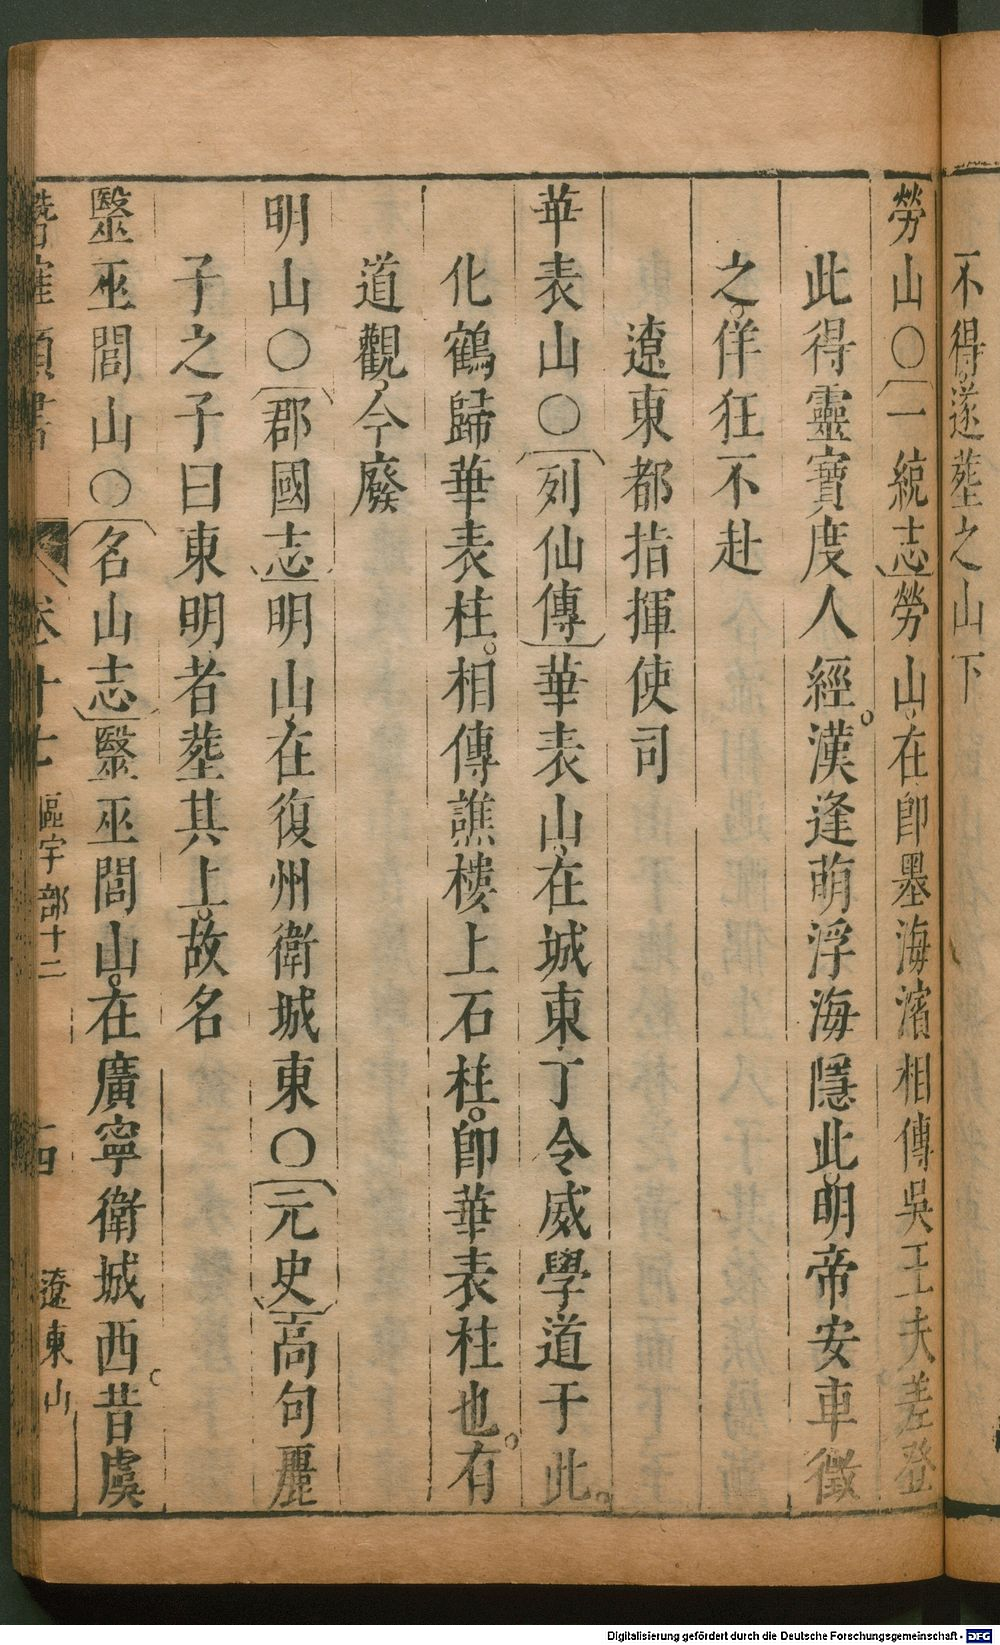 不得遂塟之山下
勞山○一統志勞山在卽墨海濱相傳吳王夫差登
此得靈寶度人經。漢逢萌浮海隱此。明帝安車徵
之。佯狂不赴
遼東都指揮使司
華表山○列仙傳華表山。在城東。丁令威學道于此。
化鶴歸華表柱。相傳譙樓上石柱。卽華表柱也。有
道觀今廢
明山○郡國志明山在復州衛城東○元史高句麗
子之子曰東明者塟其上。故名
醫巫閭山○名山志醫巫閭山。在廣寧衛城西。昔虞
潛確類書 卷十七 區宇部十二 十四 遼東山
Digitalisierung gefördert durch die Deutsche Forschungsgemeinschaft - DFG